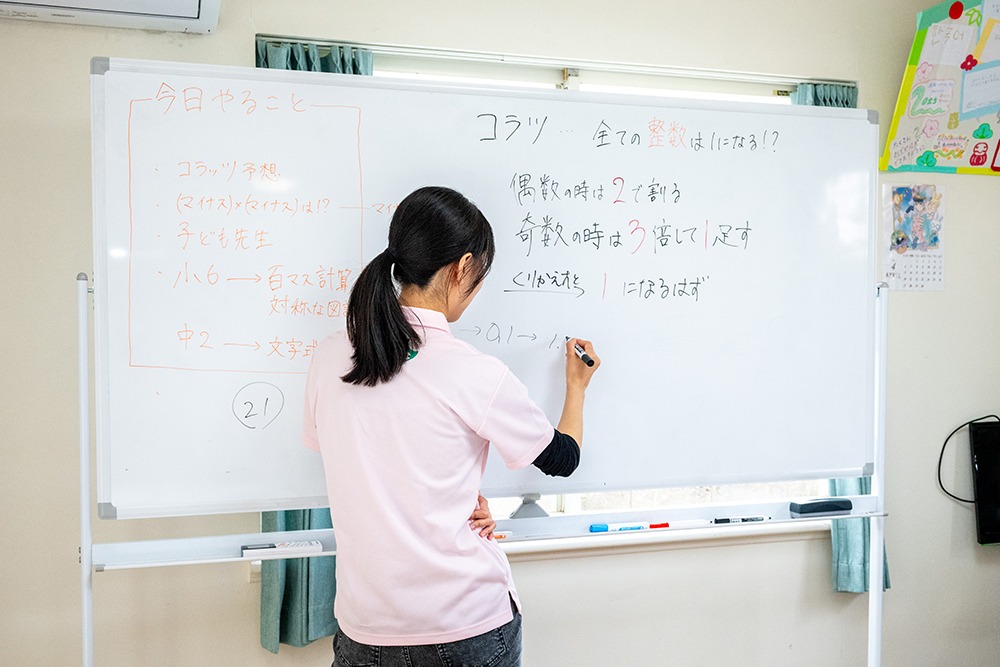 今日やること
・コラッツ予想
・(マイナス)×(マイナス)は!? ― マイ
・子ども先生
・小6 → 百マス計算
対称な図
中2 → 文字式
21
コラツ … 全ての整数は1になる!?
偶数の時は2で割る
奇数の時は3倍して1足す
くりかえすと 1になるはず
2025